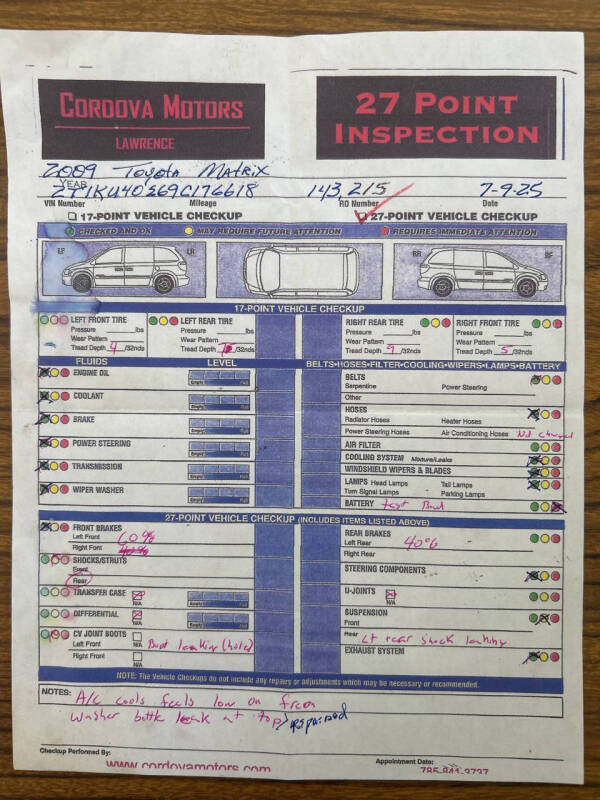 CORDOVA MOTORS
LAWRENCE
27 POINT
INSPECTION
2009 Toyota Matrix
YEAR
2T1KU40269C176618 143,215 7-9-25
VIN Number Mileage RO Number Date
17-POINT VEHICLE CHECKUP 27-POINT VEHICLE CHECKUP
CHECKED AND OK MAY REQUIRE FUTURE ATTENTION REQUIRES IMMEDIATE ATTENTION
LF LR RR RF
17-POINT VEHICLE CHECKUP
LEFT FRONT TIRE
Pressure lbs
Wear Pattern
Tread Depth 4 /32nds
LEFT REAR TIRE
Pressure lbs
Wear Pattern
Tread Depth /32nds
RIGHT REAR TIRE
Pressure lbs
Wear Pattern
Tread Depth 9 /32nds
RIGHT FRONT TIRE
Pressure lbs
Wear Pattern
Tread Depth 5 /32nds
FLUIDS LEVEL
ENGINE OIL
Empty Full
COOLANT
Empty Full
BRAKE
Empty Full
POWER STEERING
Empty Full
TRANSMISSION
Empty Full
WIPER WASHER
Empty Full
BELTS•HOSES•FILTER•COOLING•WIPERS•LAMPS•BATTERY
BELTS
Serpentine Power Steering
Other
HOSES
Radiator Hoses Heater Hoses
Power Steering Hoses Air Conditioning Hoses
AIR FILTER
COOLING SYSTEM Mixture/Leaks
WINDSHIELD WIPERS & BLADES
LAMPS Head Lamps Tail Lamps
Turn Signal Lamps Parking Lamps
BATTERY test Bad
27-POINT VEHICLE CHECKUP (INCLUDES ITEMS LISTED ABOVE)
FRONT BRAKES
Left Front 60%
Right Font
SHOCKS/STRUTS
Front
Rear
TRANSFER CASE N/A
Empty Full
DIFFERENTIAL N/A
Empty Full
CV JOINT BOOTS
Left Front N/A Boot leaking (hole)
Right Front N/A
REAR BRAKES
Left Rear 40%
Right Rear
STEERING COMPONENTS
U-JOINTS
N/A
SUSPENSION
Front
Rear Lt rear shock leaking
EXHAUST SYSTEM
NOTE: The Vehicle Checkups do not include any repairs or adjustments which may be necessary or recommended.
NOTES: A/c cools feels low on freon
washer bottle leak at top> repaired
Checkup Performed By: Appointment Date:
www.cordovamotors.com 785-841-3737